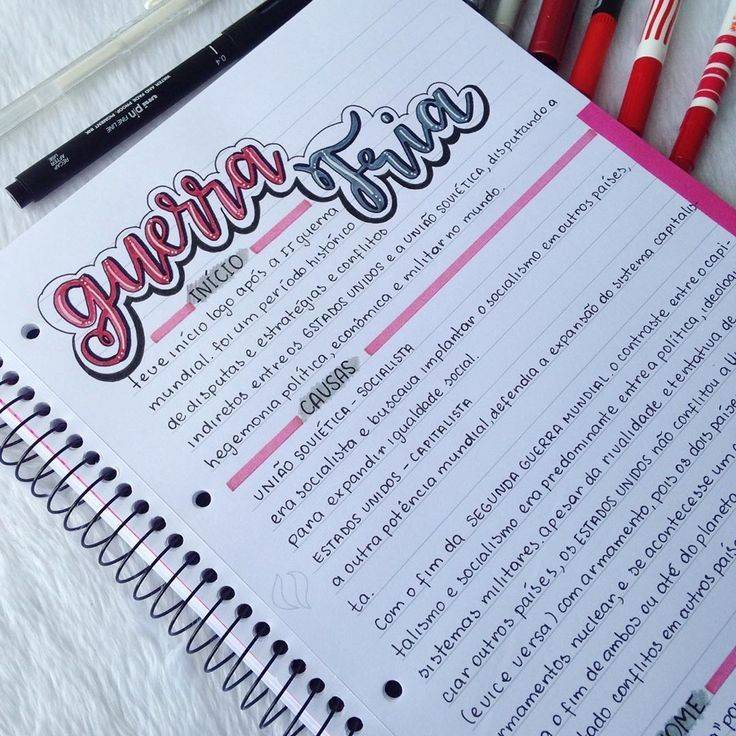 uni pin FINE LINE
WATER AND FADE PROOF PIGMENT INK
0.4
guerra Fria
INÍCIO
teve início logo após a II guerra
mundial. foi um período histórico
de disputas e estratégias e conflitos
indiretos entre os ESTADOS UNIDOS e a UNIÃO SOVIÉTICA, disputando a
hegemonia política, econômica e militar no mundo.
CAUSAS
UNIÃO SOVIÉTICA - SOCIALISTA
era socialista e buscava implantar o socialismo em outros países,
para expandir igualdade social.
ESTADOS UNIDOS - CAPITALISTA
a outra potência mundial, defendia a expansão do sistema capitalis
ta.
Com o fim da SEGUNDA GUERRA MUNDIAL o contraste entre o capi-
talismo e socialismo era predominante entre a política, ideolog
sistemas militares. Apesar da rivalidade e tentativa de
ciar outros países, os ESTADOS UNIDOS não conflitou a U
(e vice versa) com armamento, pois os dois paíse
rmamentos nuclear, e se acontecesse um
o fim de ambos ou até do planeta
lado conflitos em outros país
OME